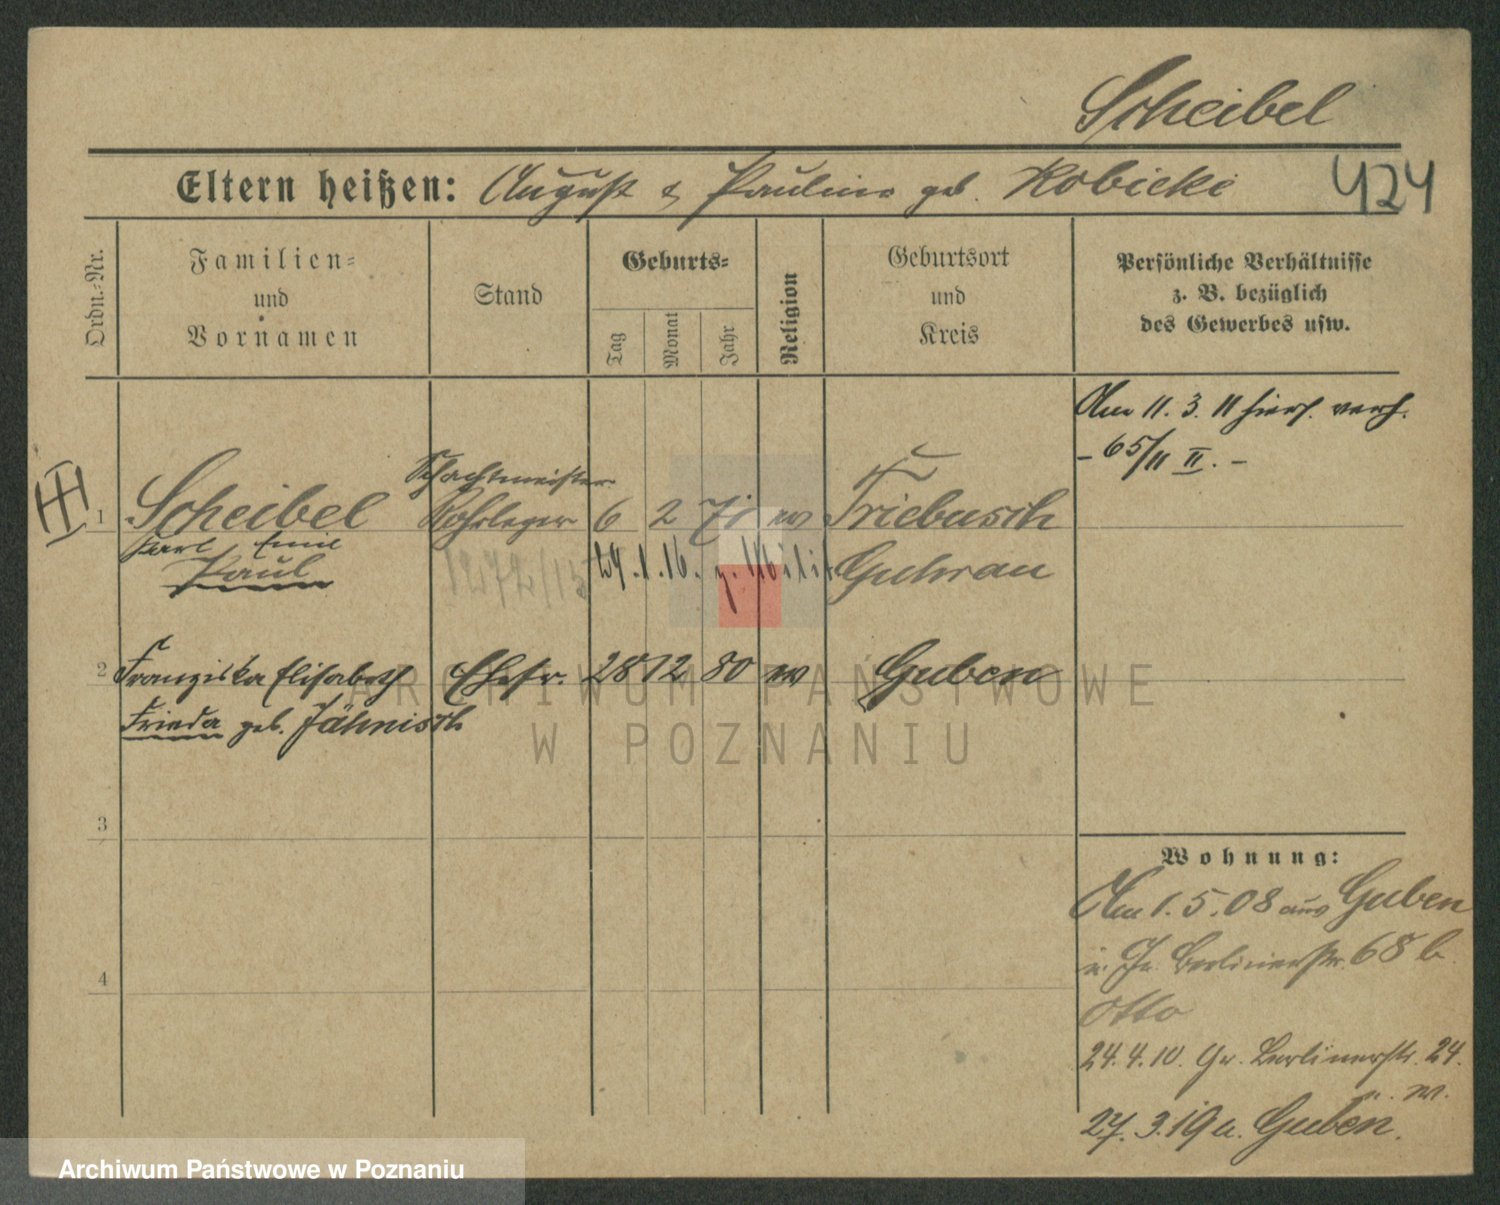 Scheibel
Eltern heißen: August & Pauline geb. Robicke
424
Ordn.-Nr.
Familien-
und
Vornamen
Stand
Geburts-
Tag
Monat
Jahr
Religion
Geburtsort
und
Kreis
Persönliche Verhältnisse
z. B. bezüglich
des Gewerbes usw.
Am 11. 3. 11 hiers. verh.
- 65/11 II. -
Schachtmeister
1 Scheibel Rohrleger 6 2 71 ev Triebusch
Karl Emil
Paul
1272/15 24.1.16. z. Milit Guhrau
2 Franziska Elisabeth Ehefr. 28 12 80 ev Guben
Frieda geb. Jähnisch
3
4
Wohnung:
Am 1. 5. 08 aus Guben
Berlinerstr. 68 b
Otto
24.4.10. Gr. Berlinerstr. 24.
27. 3. 19 a. Guben.
ARCHIWUM PAŃSTWOWE
W POZNANIU
Archiwum Państwowe w Poznaniu